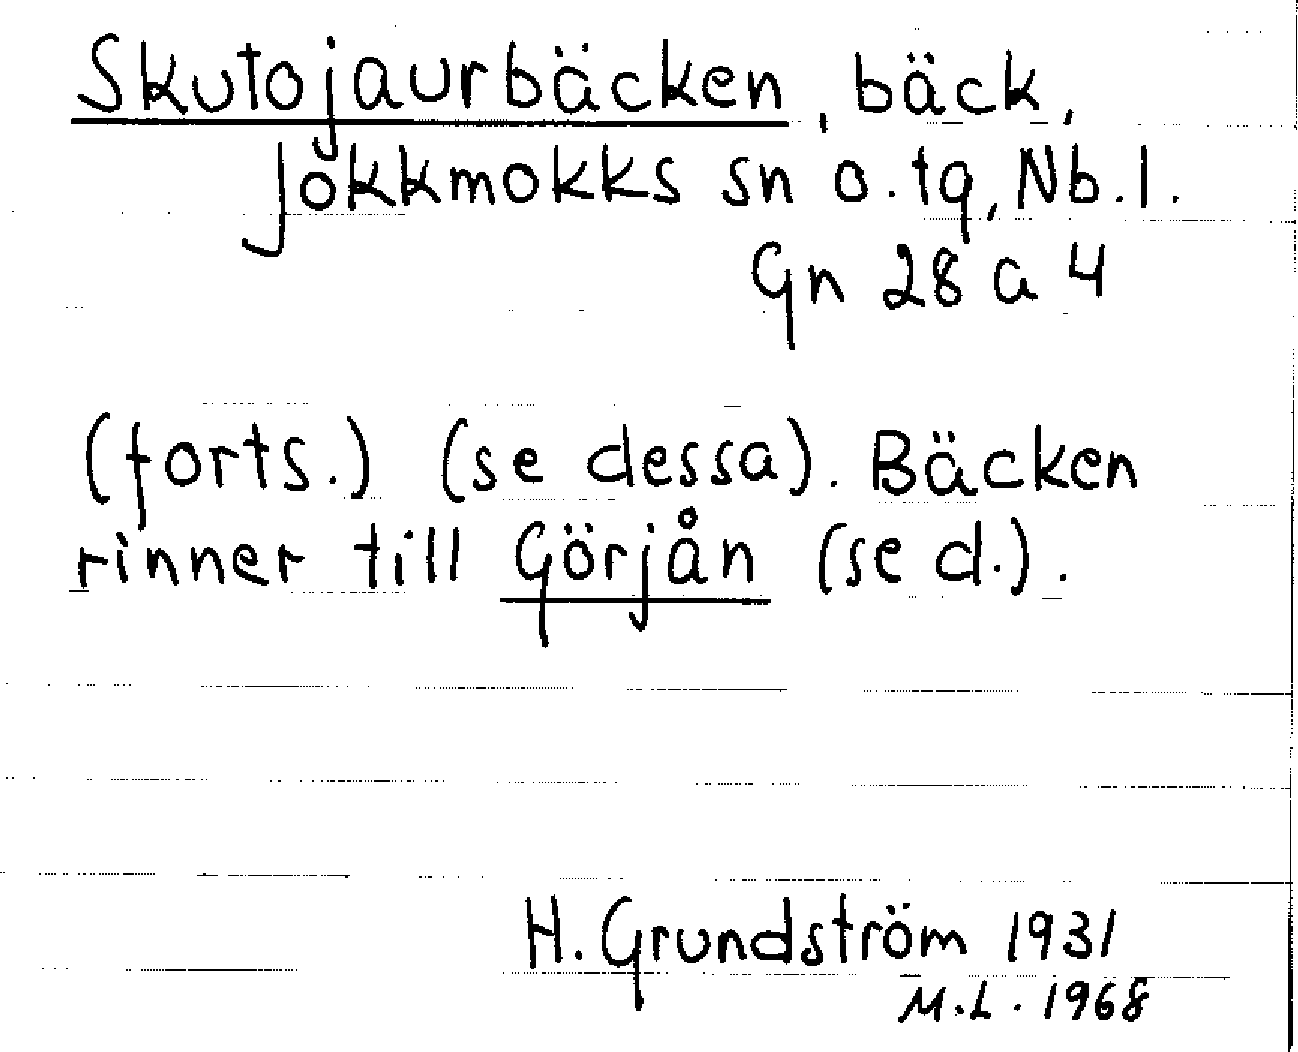 Skutojaurbäcken, bäck,
Jokkmokks sn o. tg, Nb. l.
Gn 28 a 4
(forts.) (se dessa). Bäcken
rinner till Görjån (se d.).
H. Grundström 1931
M.L. 1968